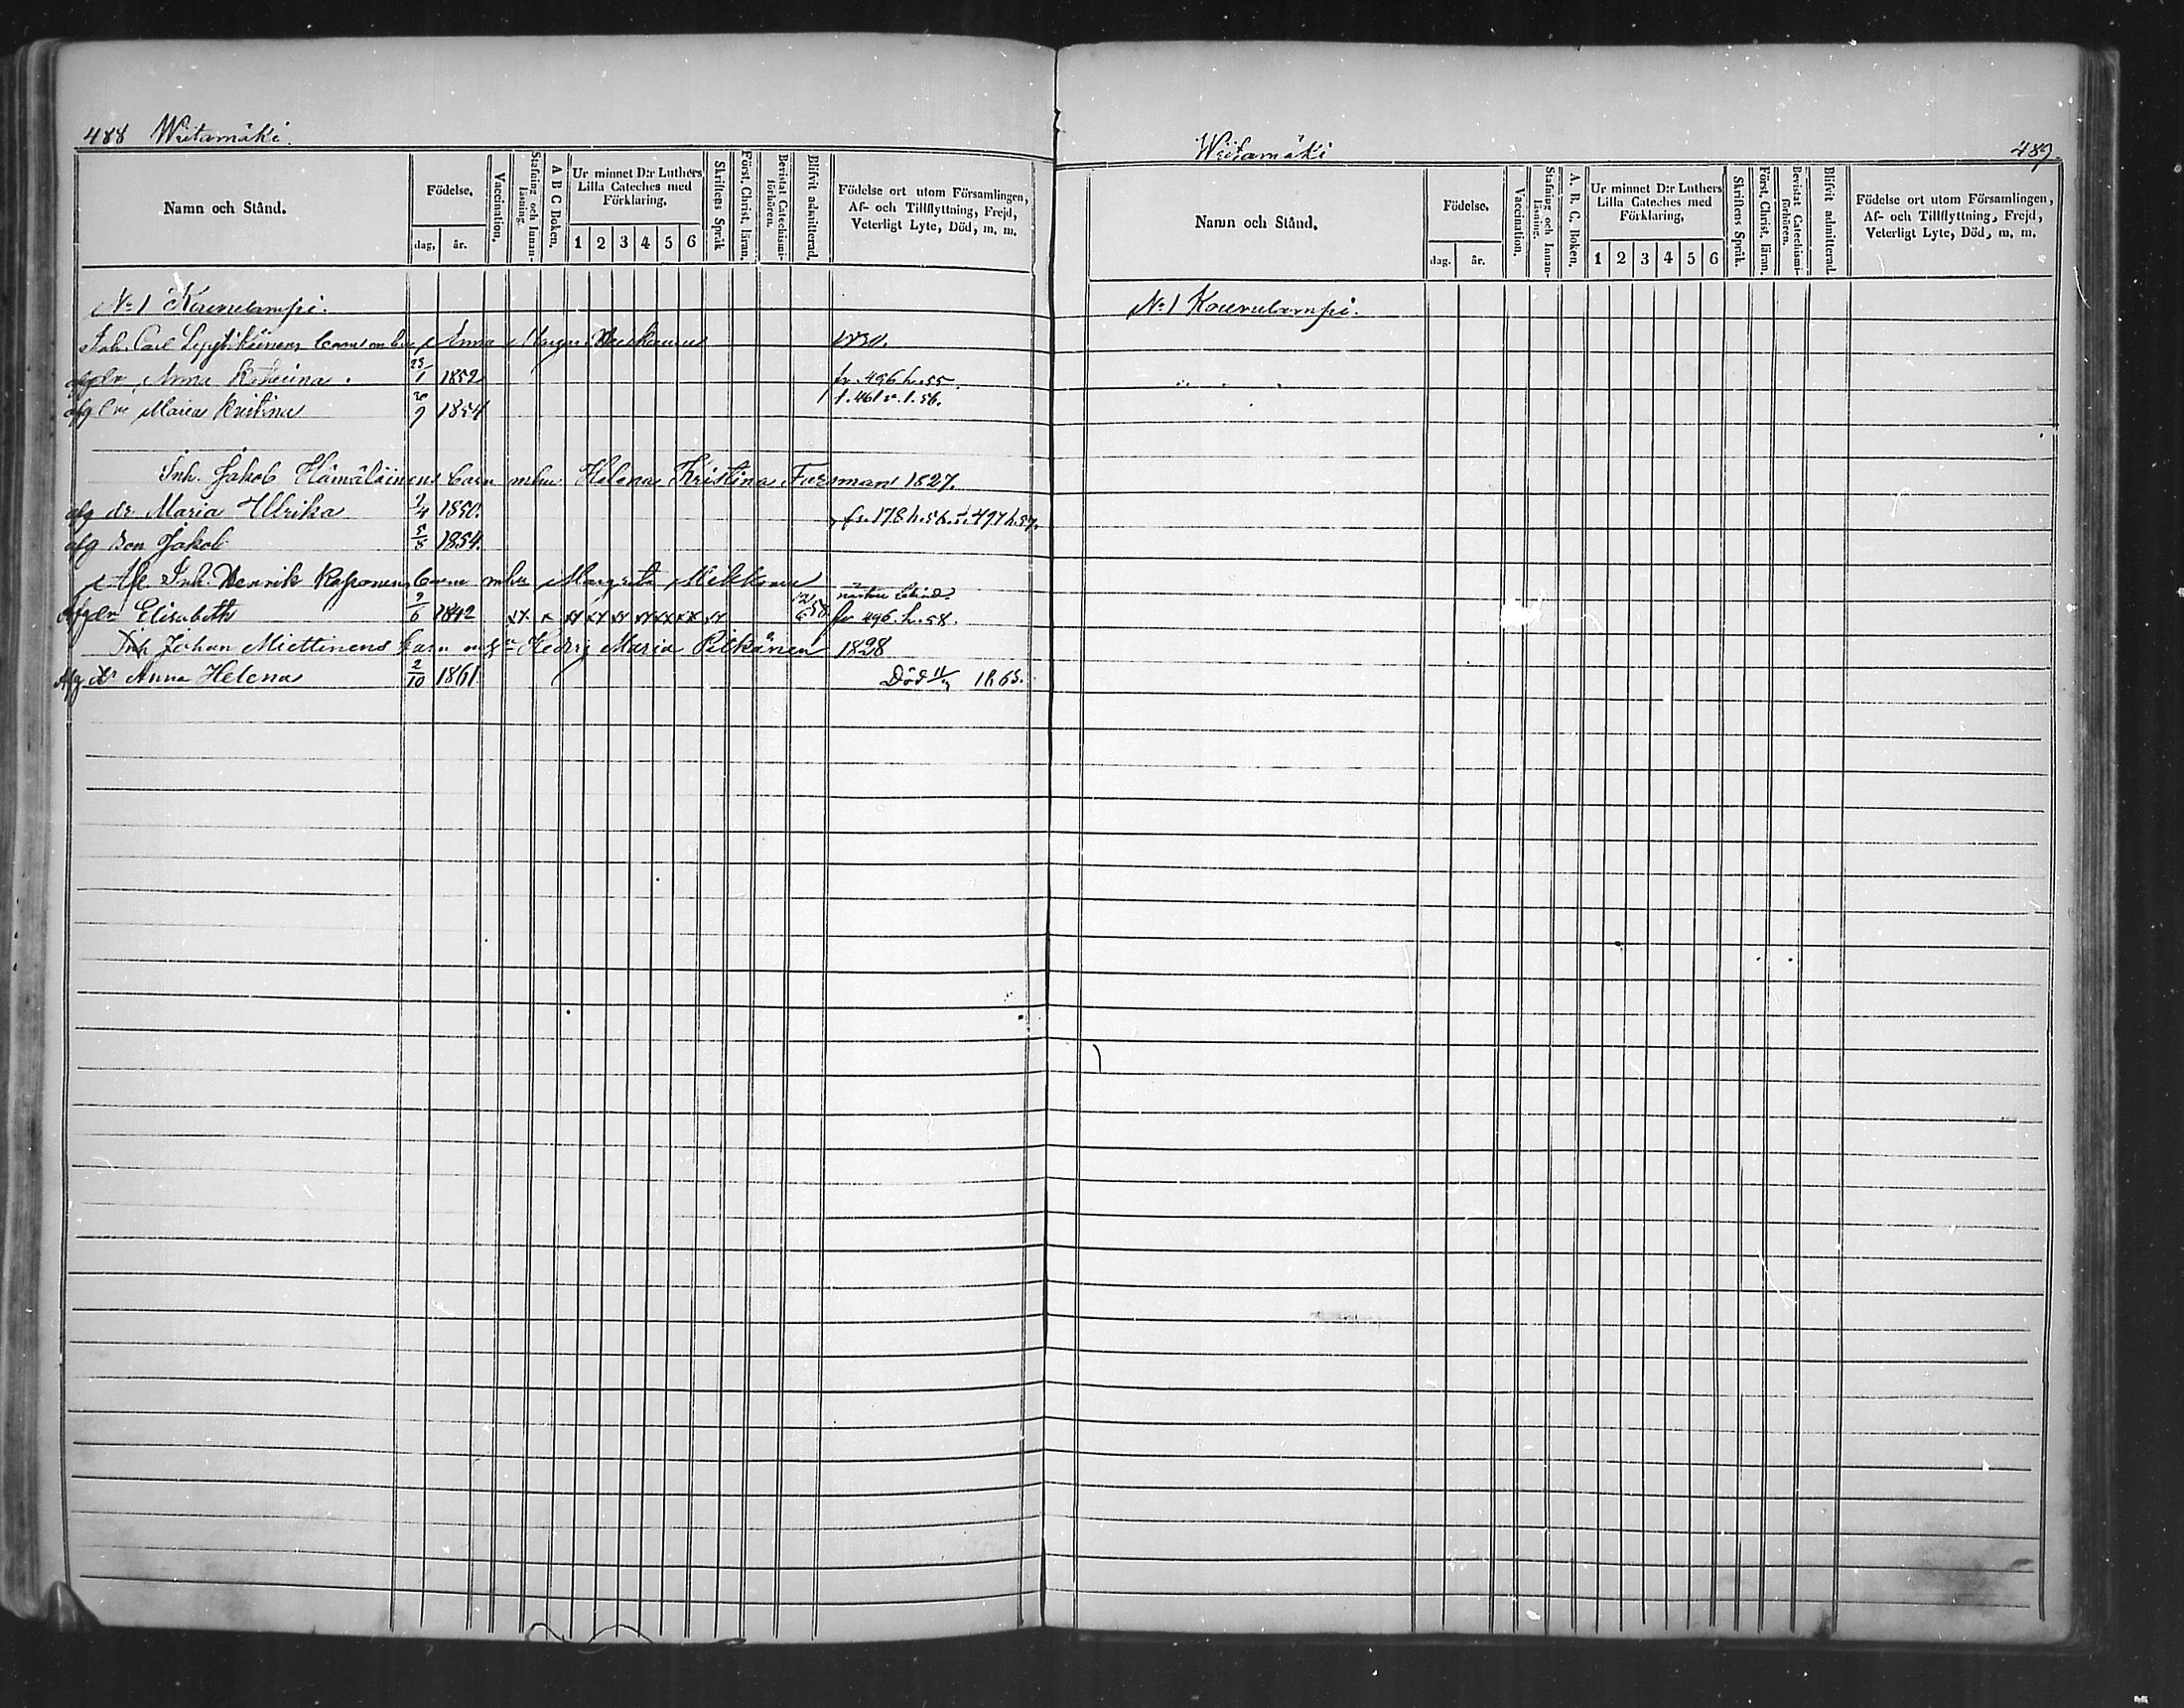 488 Wiitamäki.
Namn och Stånd.
Födelse.
dag. år.
Vaccination.
Stafning och Innan-
läsning.
A B C Boken.
Ur minnet D:r Luthers
Lilla Cateches med
Förklaring.
1 2 3 4 5 6
Skriftens Språk
Först. Christ. läran.
Bevistat Catechismi-
förhören.
Blifvit admitterad.
Födelse ort utom Församlingen,
Af- och Tillflyttning, Frejd,
Veterligt Lyte, Död, m. m.
No 1 Kouvulampi.
Inh. Carl Lyytikäinens barn Anna 1830.
afg dr Anna Katarina. 23/1 1852 fr. 496 h. 55.
afg dr Maria Kristina 20/9 1854 f. 461 1. 56.
Inh. Jakob Hämäläinens barn m hu Helena Kristina Forsman 1827.
afg dr Maria Ulrika 2/4 1850. fr. 178 h. 56. 497 h. 57.
afg Son Jakob 5/8 1854.
Afl. Inh. Henrik Kaponens barn m hu Margreta
Afg dr Elisabeth 9/6 1842 xx x xx xx xx xx xx xx xx fr 496. h. 58.
Inh Johan Miettinens barn m hu Hedvig Maria Pitkänen 1828
Afg dr Anna Helena 2/10 1861 Död 1863.
Wiitamäki 489.
Namn och Stånd.
Födelse.
dag. år.
Vaccination.
Stafning och Innan-
läsning.
A. B. C. Boken.
Ur minnet D:r Luthers
Lilla Cateches med
Förklaring.
1 2 3 4 5 6
Skriftens Språk.
Först. Christ. läran.
Bevistat Catechismi-
förhören.
Blifvit admitterad.
Födelse ort utom Församlingen,
Af- och Tillflyttning, Frejd,
Veterligt Lyte, Död, m. m.
No 1 Kouvulampi.